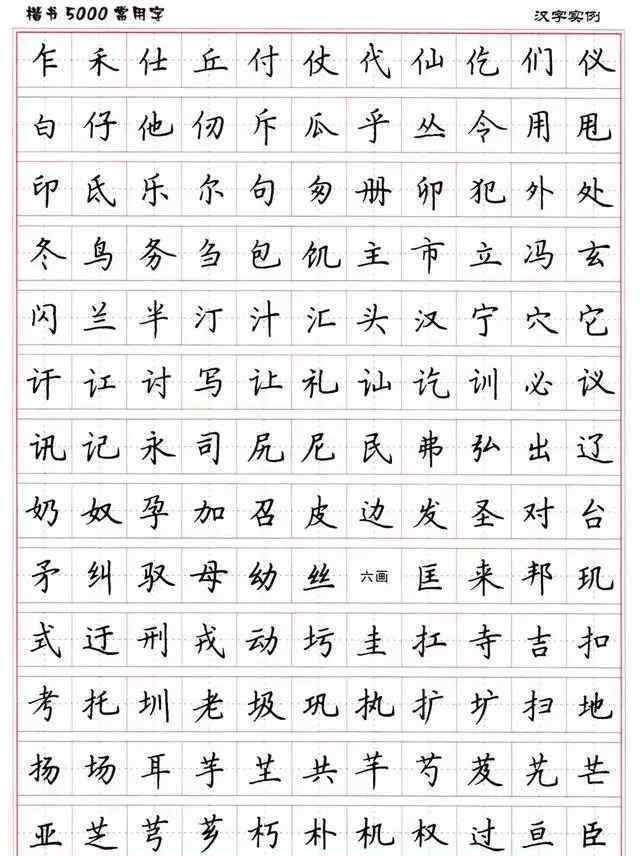 楷书5000常用字 汉字实例
乍 禾 仕 丘 付 仗 代 仙 仡 们 仪
白 仔 他 仞 斥 瓜 乎 丛 令 用 甩
印 氐 乐 尔 句 匆 册 卯 犯 外 处
冬 鸟 务 刍 包 饥 主 市 立 冯 玄
闪 兰 半 汀 汁 汇 头 汉 宁 穴 它
讦 讧 讨 写 让 礼 讪 讫 训 必 议
讯 记 永 司 尻 尼 民 弗 弘 出 辽
奶 奴 孕 加 召 皮 边 发 圣 对 台
矛 纠 驭 母 幼 丝 六画 匡 来 邦 玑
式 迂 刑 戎 动 圬 圭 扛 寺 吉 扣
考 托 圳 老 圾 巩 执 扩 圹 扫 地
扬 场 耳 芋 芏 共 芊 芍 芨 芄 芒
亚 芝 芎 芗 朽 朴 机 权 过 亘 臣